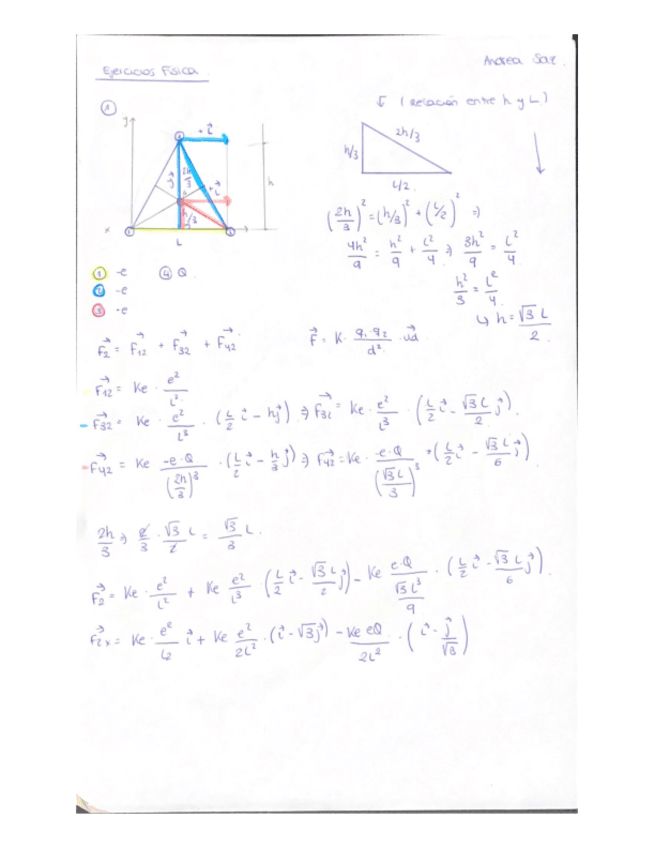 Ejercicios Física.
Andrea
①
↓ (Relación entre h y L)
y
+ i
h
L
h/3
2h/3
L/2
(2h/3)² = (h/3)² + (L/2)² ⇒
4h²/9 = h²/9 + L²/4 ⇒ 3h²/9 = L²/4
h²/3 = L²/4
↳ h = √3 L / 2
① -e ④ Q
② -e
③ -e
F₂ = F₁₂ + F₃₂ + F₄₂ F = K · q₁·q₂/d² · ud
F₁₂ = Ke · e²/L²
F₃₂ = Ke · e²/L³ · (L/2 i - hj) ⇒ F₃₂ = Ke · e²/L³ · (L/2 i - √3 L/2 j).
F₄₂ = Ke -e·Q/(2h/3)³ · (L/2 i - h/3 j) ⇒ F₄₂ = Ke · -e·Q/(√3L/3)³ · (L/2 i - √3 L/6 j)
2h/3 ⇒ 2/3 · √3 L/2 = √3/3 L.
F₂ = Ke · e²/L² + Ke e²/L³ (L/2 i - √3 L/2 j) - Ke e·Q/(√3 L³/9) · (L/2 i - √3 L/6 j).
F₂ₓ = Ke · e²/L² i + Ke e²/2L² · (i - √3 j) - Ke eQ/2L² · (i - j/√3)